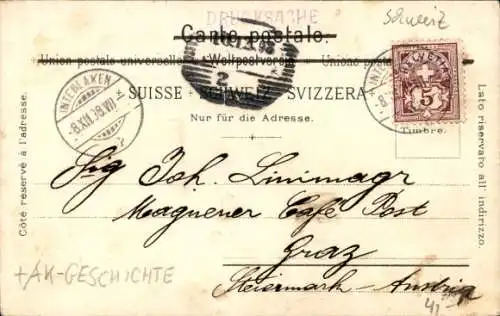 DRUCKSACHE
Schweiz
Carte postale.
Union postale universelle. Weltpostverein. Unione postale
2
SUISSE SCHWEIZ SVIZZERA
Nur für die Adresse.
INTERLAKEN
-8.XII.98.VII
HELVETIA
5
Timbre.
Côté réservé à l'adresse.
Lato riservato all' indirizzo.
Sig Joh. Linimagr
Wagnener Café Post
Graz
Steiermark - Austria
+AK-GESCHICHTE